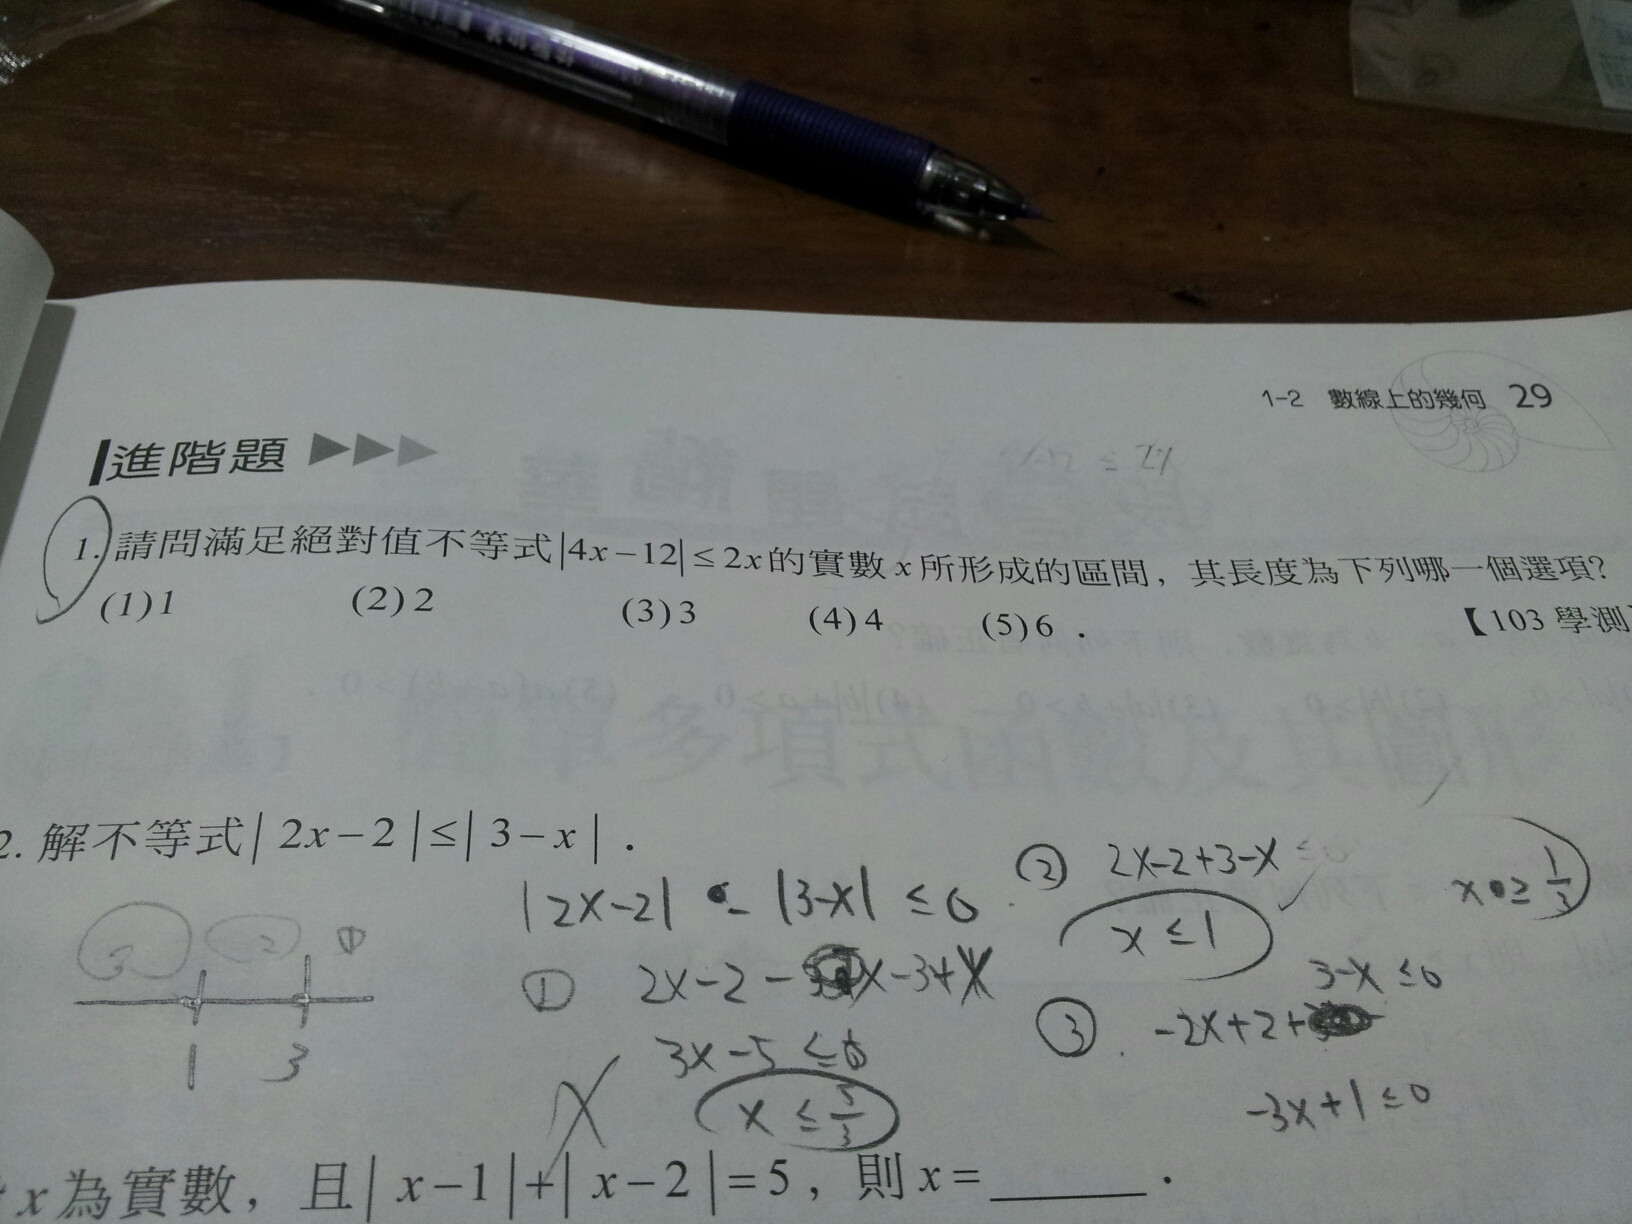 1-2 數線上的幾何 29
進階題
≤ 2x
1. 請問滿足絕對值不等式|4x-12|≤2x的實數x所形成的區間，其長度為下列哪一個選項?
(1)1 (2)2 (3)3 (4)4 (5)6．
【103 學測
2. 解不等式|2x-2|≤|3-x|．
3 2 ①
1 3
|2x-2| - |3-x| ≤ 0
① 2x-2- x-3+x
3x-5 ≤ 0
x ≤ 5/3
② 2x-2+3-x ≤0
x ≤ 1
3-x ≤0
③ -2x+2+
-3x+1 ≤ 0
x ≥ 1/3
x為實數，且|x-1|+|x-2|=5，則x=______．